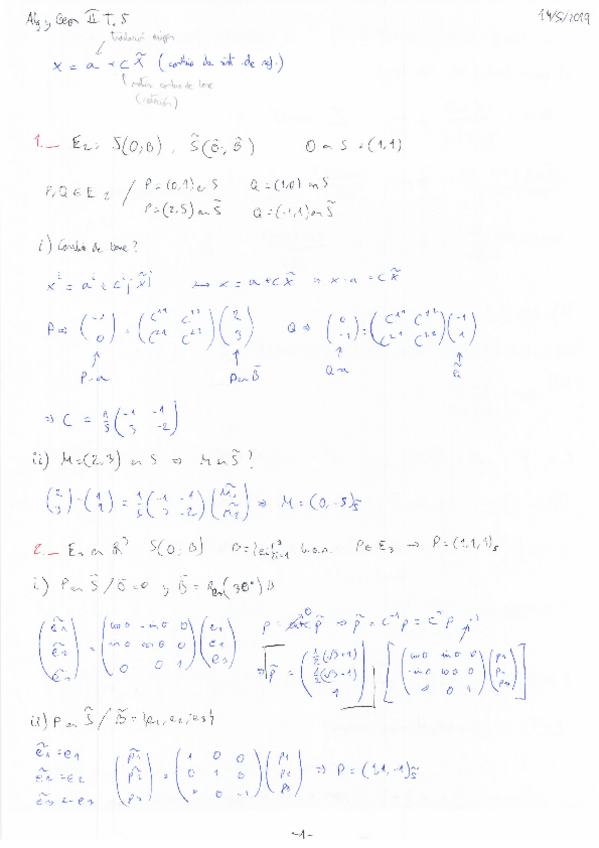 Alg y Geom II T. 5 14/5/2019
traslación origen
x = a + C x̃ (cambio de sist. de ref.)
matriz cambio de base
(rotación)
1._ E₂: S(O;B), S̃(Õ;B̃) Õ en S = (1,1)
P,Q ∈ E₂ / P=(0,1) en S Q=(1,0) en S
P=(2,3) en S̃ Q=(-1,1) en S̃
i) Cambio de base?
xⁱ = aⁱ + Cⁱj x̃ʲ ↔ x = a + C x̃ ⇒ x-a = C x̃
P ⇒ (-1 0) = (C¹¹ C¹² C²¹ C²²)(2 3) Q ⇒ (0 -1) = (C¹¹ C¹² C²¹ C²²)(-1 1)
P-a P en B̃ Q-a
⇒ C = 1/5 (-1 -1 3 -2)
ii) M=(2,3) en S ⇒ M en S̃?
(2 3) - (1 1) = 1/5 (-1 -1 3 -2)(M̃₁ M̃₂) ⇒ M = (0,-5)s̃
2._ E₃ en ℝ³ S(O;B) B={ei}³i=1 b.o.n. P∈E₃ → P=(1,1,1)s
i) P en S̃ / Õ=O y B̃ = Re₃(30°)B
(ẽ1 ẽ2 ẽ3) = (cosθ -senθ 0 senθ cosθ 0 0 0 1)(e1 e2 e3) p̃ = C⁻¹p = Cᵀp
⇒ p̃ = (½(√3+1) ½(√3-1) 1) [(cosθ senθ 0 -senθ cosθ 0 0 0 1)(p1 p2 p3)]
ii) P en S̃ / B̃={e1,e2,-e3}
ẽ1 = e1
ẽ2 = e2
ẽ3 = -e3 (p̃1 p̃2 p̃3) = (1 0 0 0 1 0 0 0 -1)(p1 p2 p3) ⇒ P = (1,1,-1)s̃
-1-